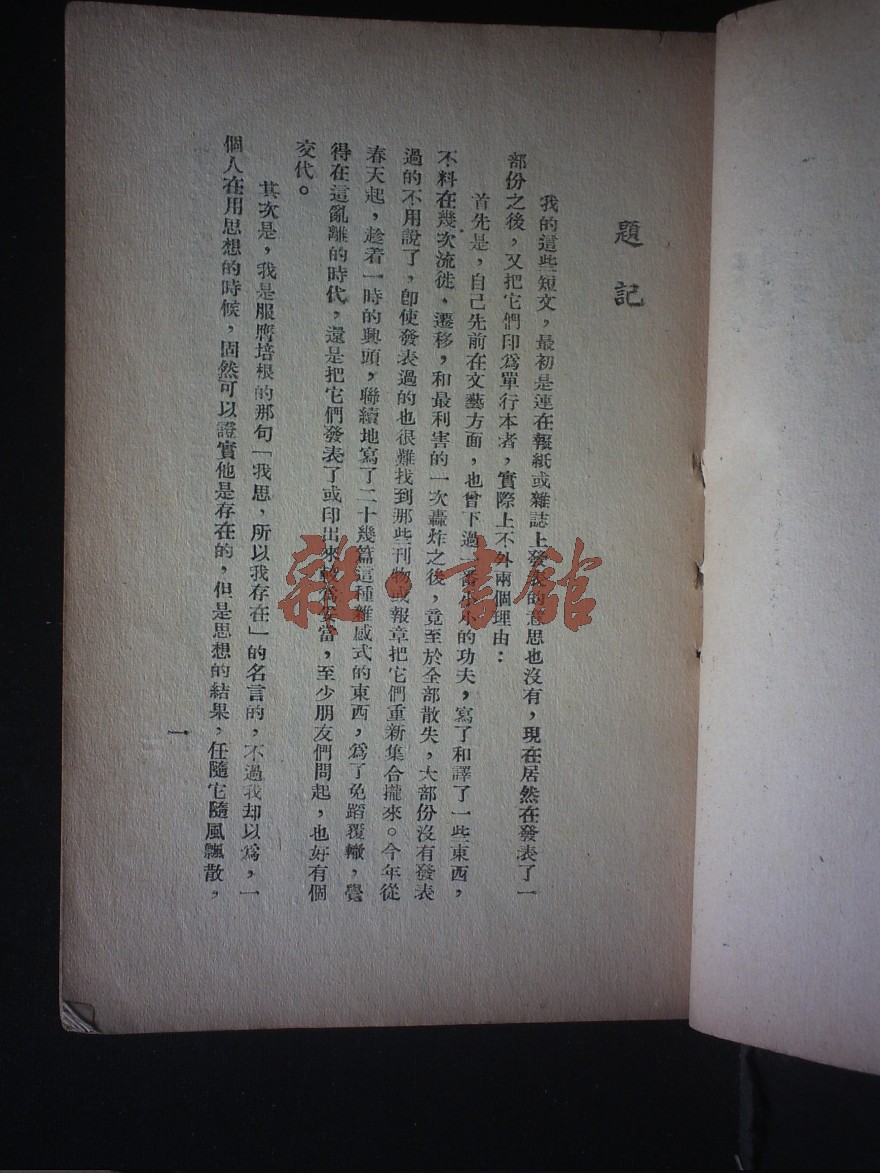 題記
我的這些短文，最初是連在報紙或雜誌上發表的意思也沒有，現在居然在發表了一
部份之後，又把它們印爲單行本者，實際上不外兩個理由：
首先是，自己先前在文藝方面，也曾下過一番小小的功夫，寫了和譯了一些東西，
不料在幾次流徙、遷移，和最利害的一次轟炸之後，竟至於全部散失，大部份沒有發表
過的不用說了，卽使發表過的也很難找到那些刊物或報章把它們重新集合攏來。今年從
春天起，趁着一時的興頭，聯續地寫了二十幾篇這種雜感式的東西，爲了免蹈覆轍，覺
得在這亂離的時代，還是把它們發表了或印出來較爲妥當，至少朋友們問起，也好有個
交代。
其次是，我是服膺培根的那句「我思，所以我存在」的名言的，不過我却以爲，一
個人在用思想的時候，固然可以證實他是存在的，但是思想的結果，任隨它隨風飄散，
一
雜·書館